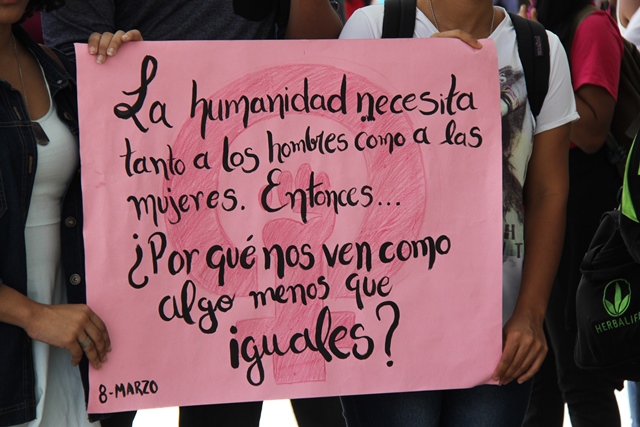 La humanidad necesita
tanto a los hombres como a las
mujeres. Entonces...
¿Por qué nos ven como
algo menos que
iguales?
8-MARZO
HERBALIFE